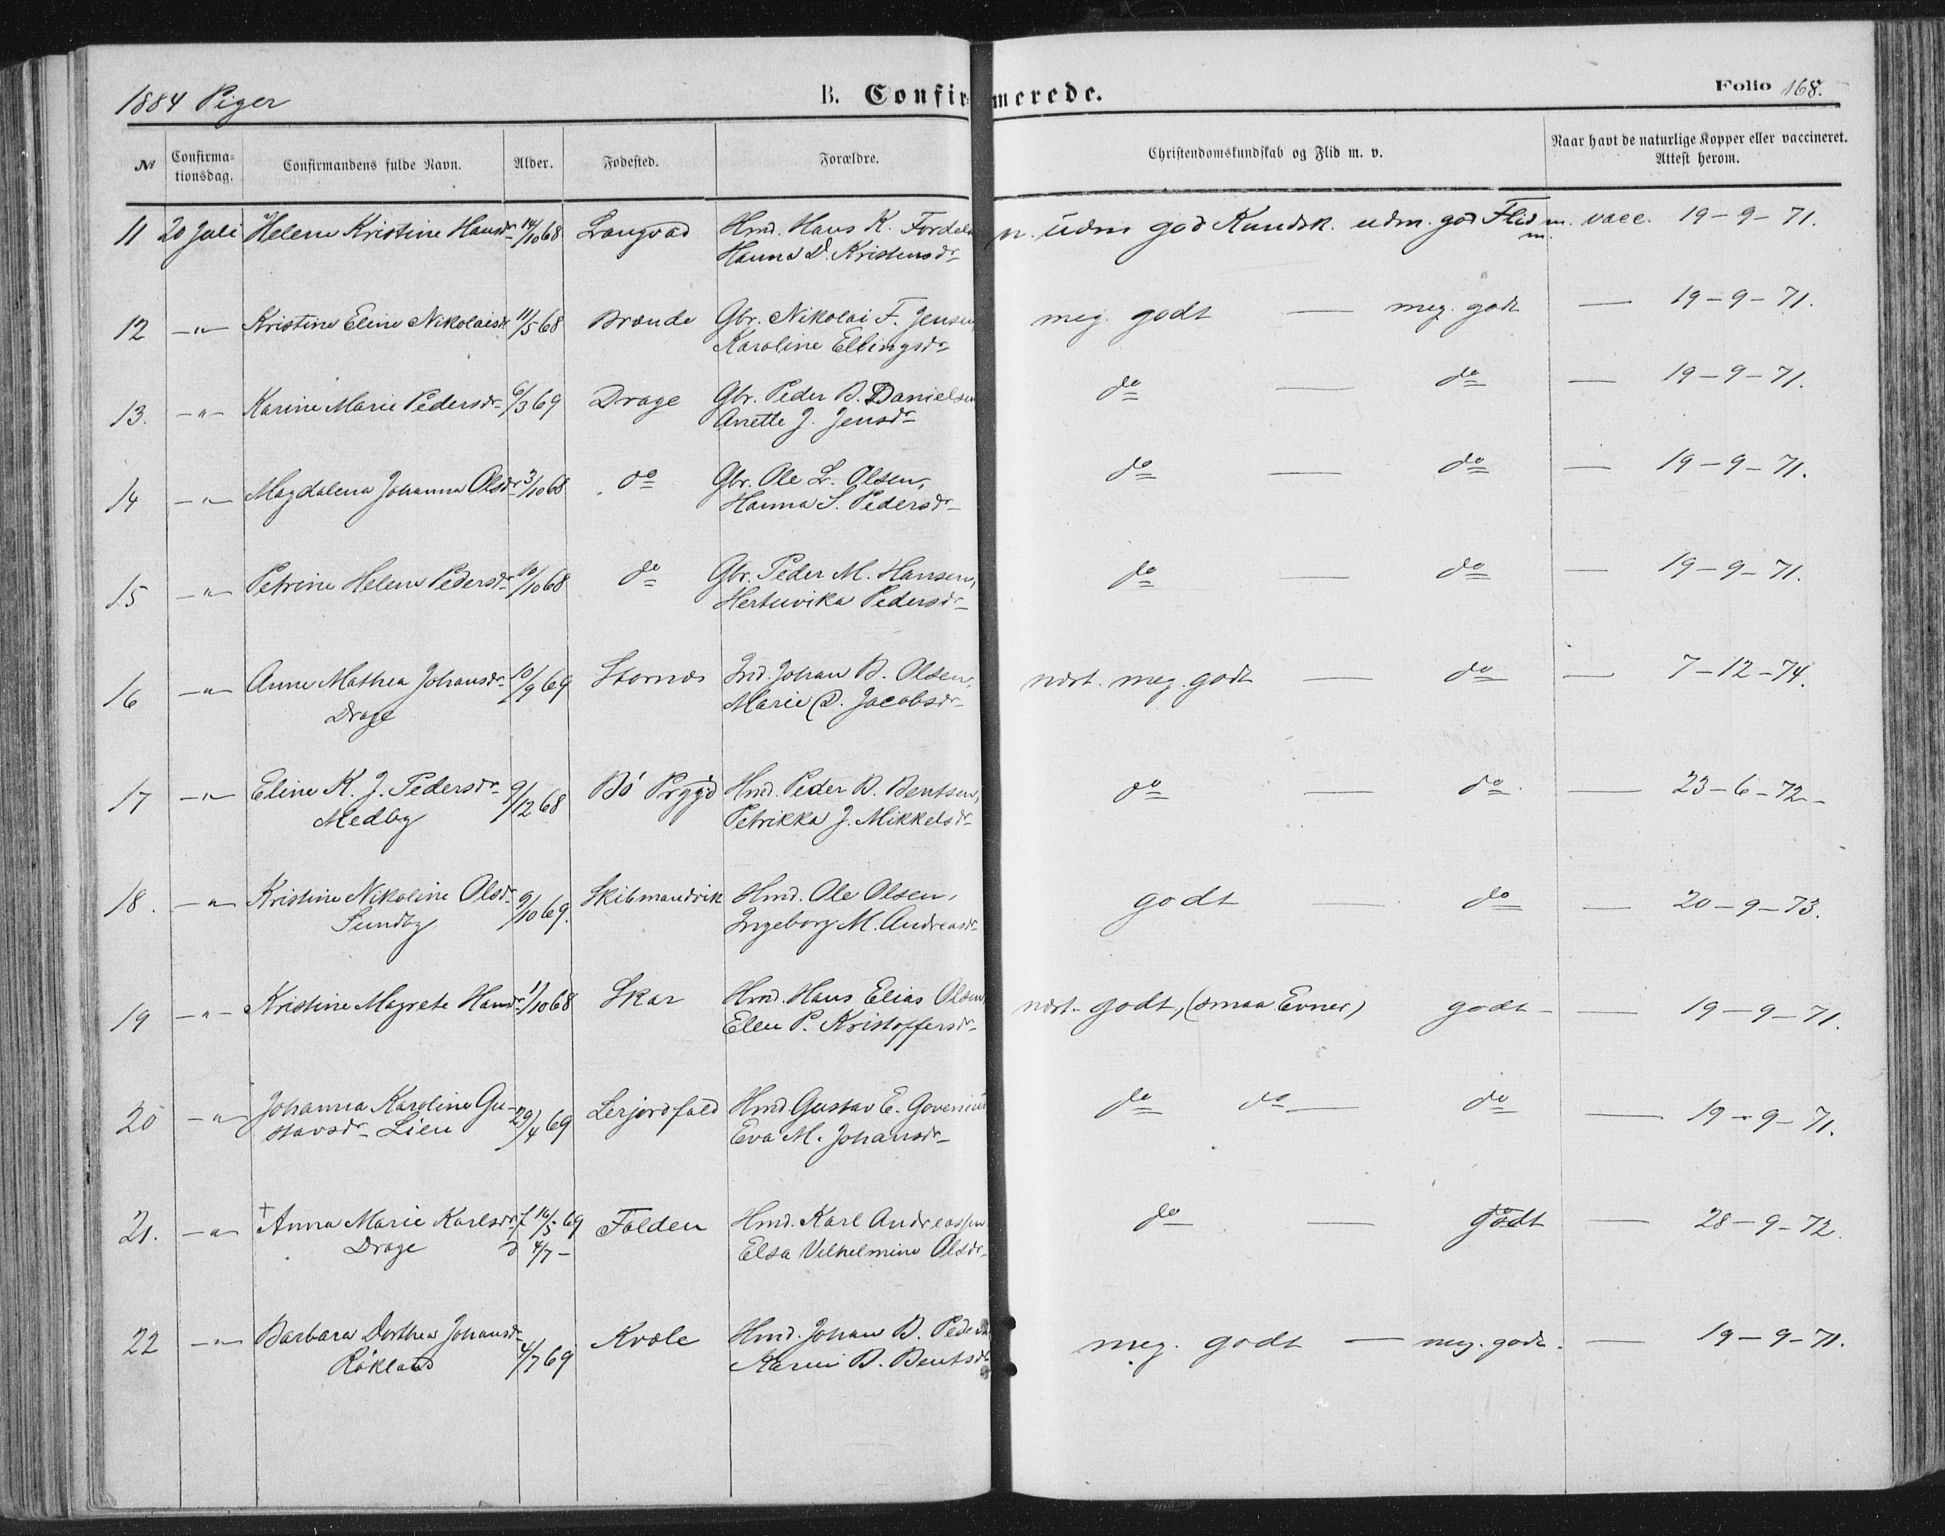 1884 Piger
B. Confirmerede.
Folio 168.
№ Confirma-tionsdag. Confirmandens fulde Navn. Alder. Fødested. Forældre. Christendomskundskab og Flid m. v. Naar havt de naturlige Kopper eller vaccineret. Attest herom.
11 20 Juli Helene Kristine Hansdr 14/10 68 Langvad Hmd. Hans K. udm god Kundsk. udm. god Flid m. vacc. 19-9-71.
Hanna D. Kristensdr
12 -"- Kristine Eline Nikolaisdr 11/5 68 Brænde Gbr. Nikolai F. Jensen meg. godt — meg. godt — 19-9-71.
Karoline Ellingsdr
13. -"- Karine Marie Pedersdr 6/3 69 Drage Gbr. Peder B. Danielsen do — do — 19-9-71.
Anette J. Jensdr
14 -"- Magdalena Johanna Olsdr 3/10 68 do Gbr. Ole L. Olsen, do — do — 19-9-71.
Hanna S. Pedersdr
15 -"- Petrine Helene Pedersdr 10/10 68 do Gbr. Peder M. Hansen, do — do — 19-9-71.
Hertuvika Pedersdr
16 -"- Anne Mathea Johansdr 10/9 69 Stornes Ind. Johan B. Olsen, næst. meg. godt — do — 7-12-74.
Drage Marie D. Jacobsdr
17 -"- Eline K. J. Pedersdr 9/12 68 Bö Hmd. Peder B. Bentsen, do — do — 23-6-72-
Medby Petrikka J. Mikkelsdr
18. -"- Kristine Nikoline Olsdr 9/10 69. Skibmandvik Hmd. Ole Olsen, godt — do — 20-9-73.
Sundby Ingeborg M. Andreasdr
19 -"- Kristine Magrete Hansdr 1/10 68 Skar Hmd. Hans Elias Olsen, næst. godt, (smaa Evner) godt — 19-9-71.
Elen P. Kristoffersdr
20 -"- Johanna Karoline Gu- 29/4 69 Lerjordfald Hmd Gustav E. Govenius do do — do — 19-9-71.
stavsdr Lien Eva M. Johansdr
21. -"- † Anna Marie Karlsdr f 16/5 69 Folden Hmd. Karl Andreassen do — godt — 28-9-72.
Drage d 4/7 — Elsa Vilhelmine Olsdr
22 -"- Barbara Dorthea Johansdr 4/7 69 Kvæle Hmd. Johan B. Pedersen meg. godt — meg. godt. — 19-9-71.
Røkland Karen B. Bentsdr